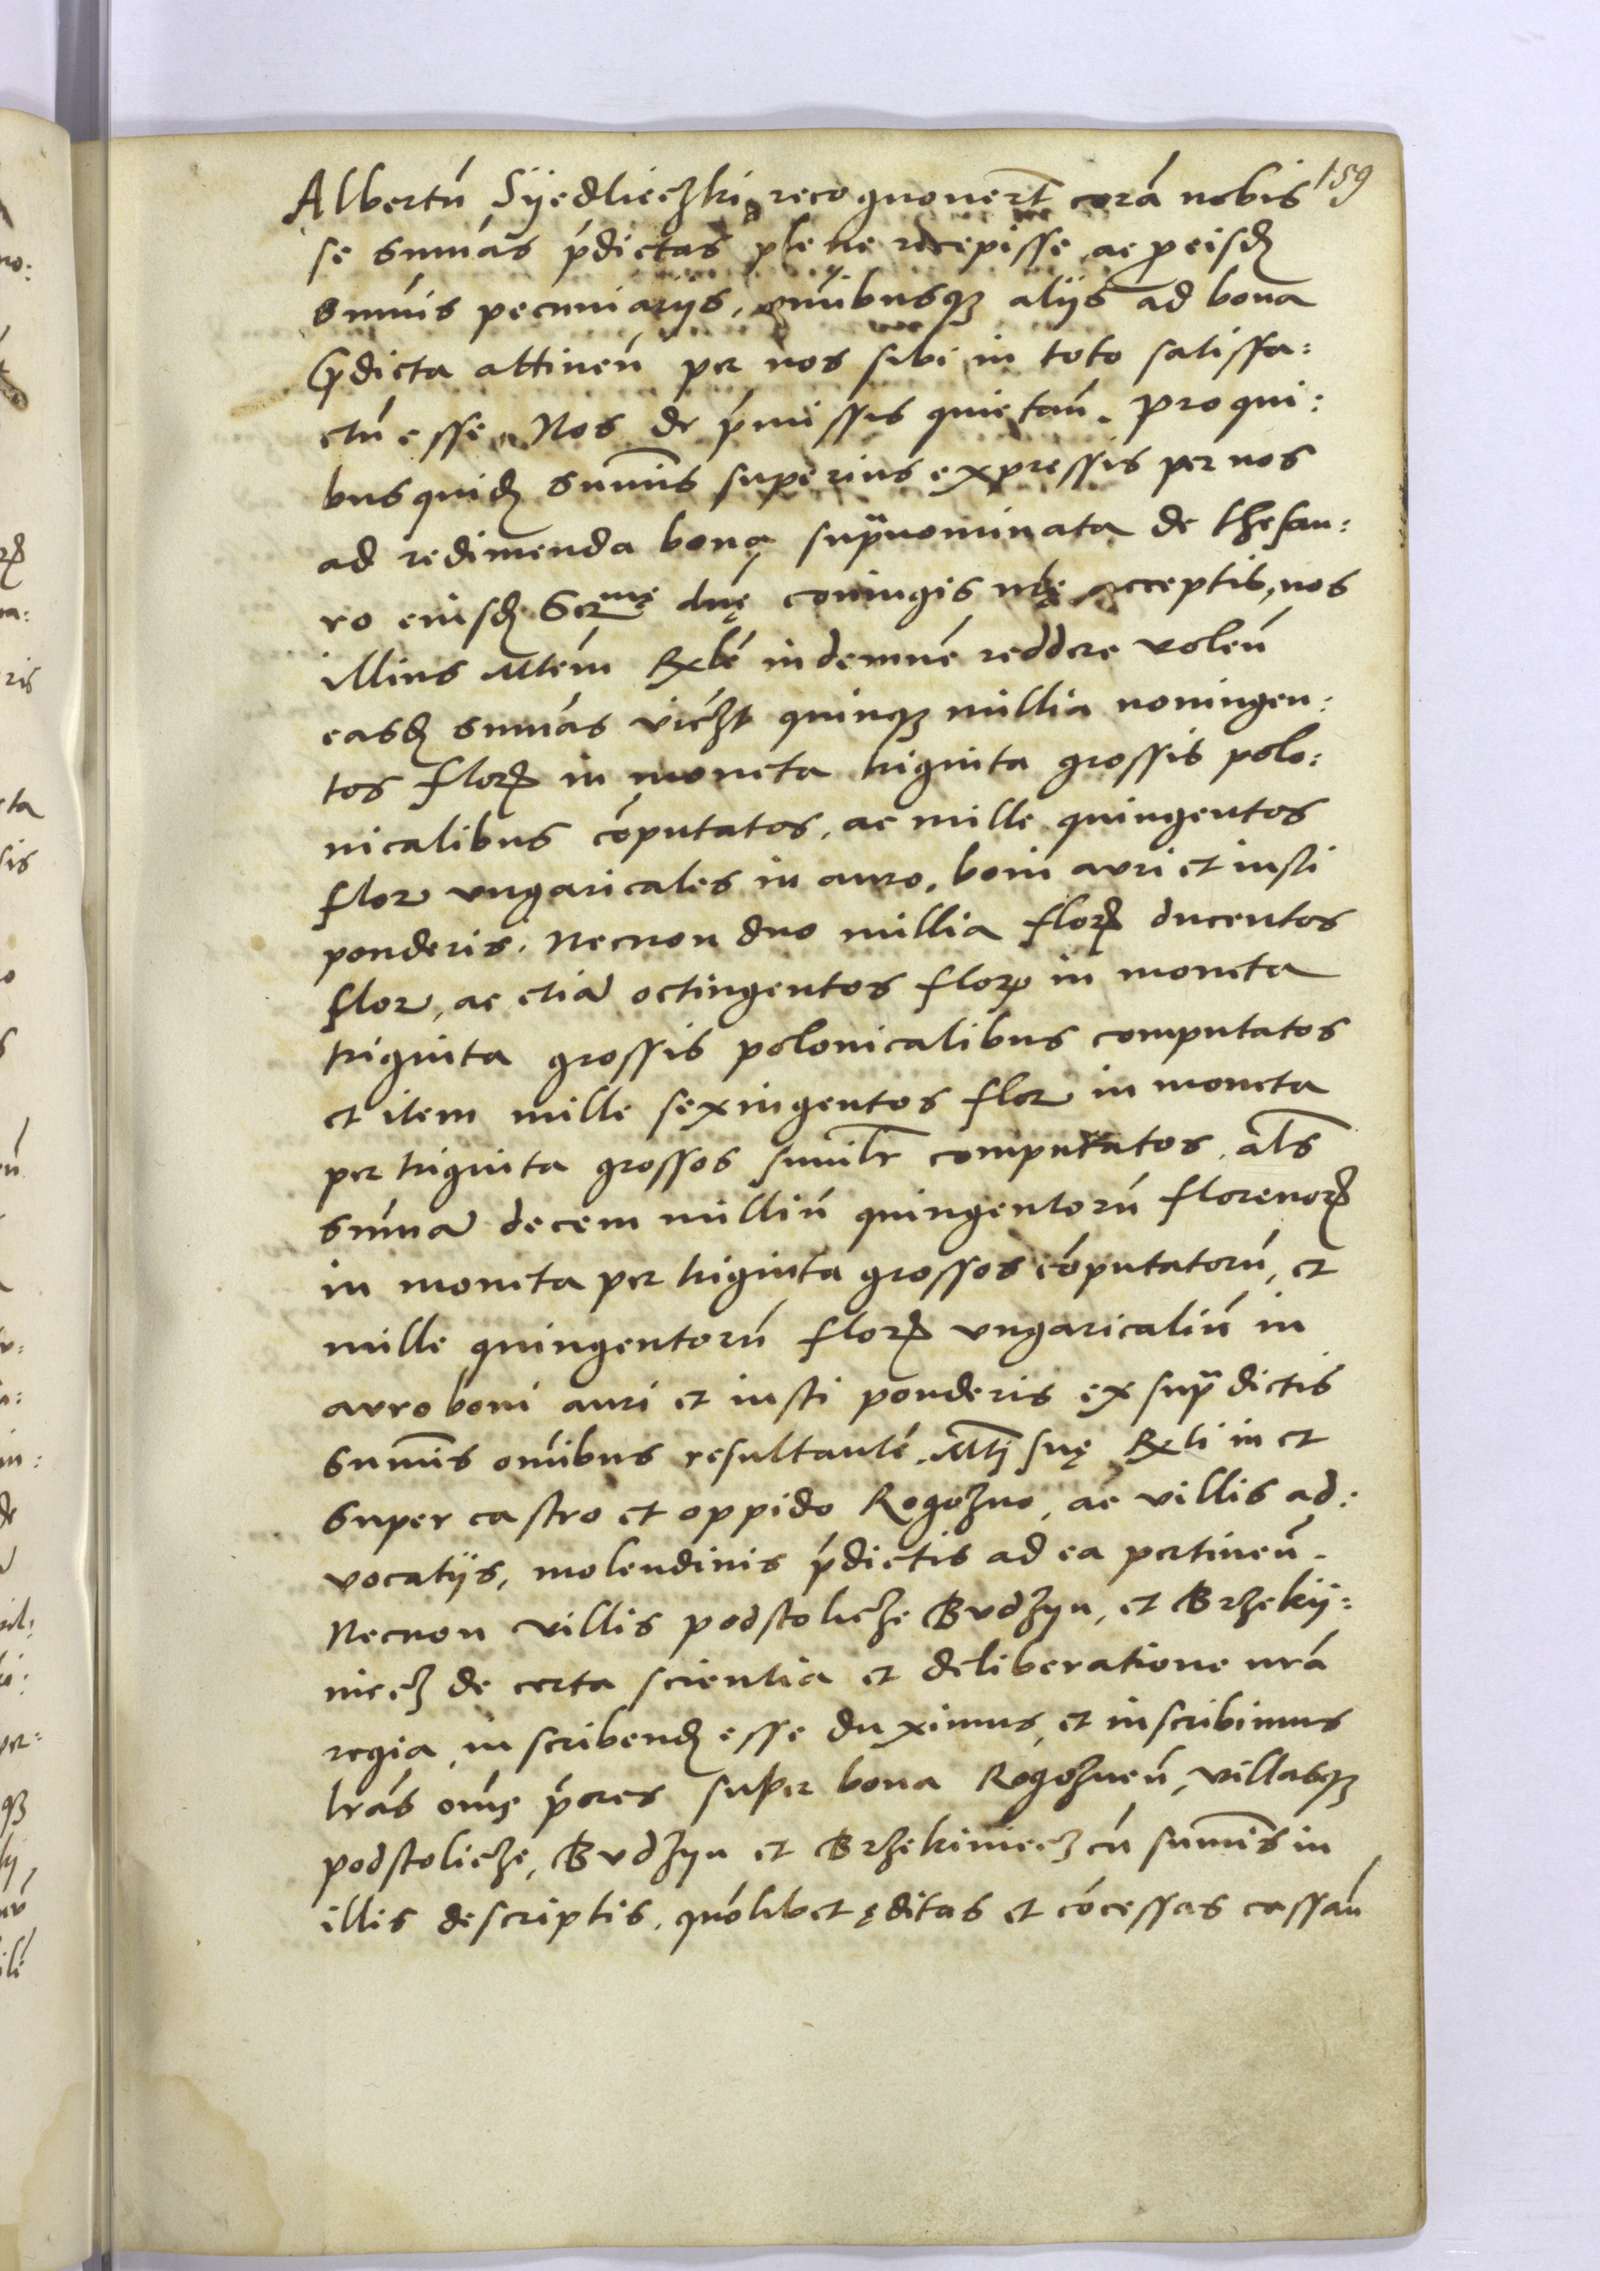 159
Albertū Syedlieczki recognouerūt corā nobis
se sum̄as p̄dictas plene recepisse, ac p eisdē
sum̄is pecuniarijs, om̄ibusqȝ alijs ad bona
p̄dicta attineń per nos sibi in toto satisfa:
ctū esse. Nos de p̄missis quietań. Pro qui:
bus quidē sum̄is superius expressis per nos
ad redimenda bona supranominata de thesau:
ro eiusdē Sermę dnę coniugis nrę acceptis, nos
illius Mtem Rxlē indemnē reddere voleń
easdē sum̄as viczt quinqȝ millia noningen:
tos florꝭ in moneta triginta grossis polo:
nicalibus cōputatos, ac mille quingentos
flor ungaricales in auro, boni auri et iusti
ponderis. Necnon duo millia florꝭ ducentos
flor, ac etiā octingentos florꝭ in moneta
triginta grossis polonicalibus computatos
et item mille sexingentos flor in moneta
per triginta grossos similr computatos, als
sum̄ā decem milliū quingentorū florenorꝭ
in moneta per triginta grossos cōputatorū, et
mille quingentorū florꝭ ungaricaliū in
auro boni auri et iusti ponderis ex supradictis
sum̄is om̄ibus resultantē. Mti suę Rxli in et
super castro et oppido Rogozno, ac villis ad:
vocatijs, molendinis p̄dictis ad ea pertineń.
Necnon villis podstolicze Budzyn, et Brzekij:
niecz de certa scientia et deliberatione nrā
regia inscribendȩ esse duximus, et inscribimus
lrās om̄ę p̄ores super bona Rogozneń, villasqȝ
podstolicze, Budzyn et Brzekiniecz cū sum̄is in
illis descriptis, quōlibet ęditas et cōcessas cassań